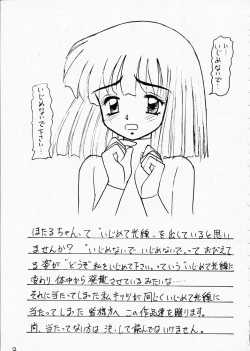 い…
いじめないで
…
いじめないで下さい…
ほたるちゃんって "いじめて光線" を出していると思い
ませんか？ "いじめないで いじめないで" って おびえて
る姿が "どうぞ 私をいじめて下さい" っていう いじめて光線に
変わり 体中から発散させているみたいな……
それに当たってしまった私 キッリが 同じくいじめて光線に
当たってしまった皆様方へ この作品達を贈ります。
尚、当たってない方は 決して読んではいけません。
3